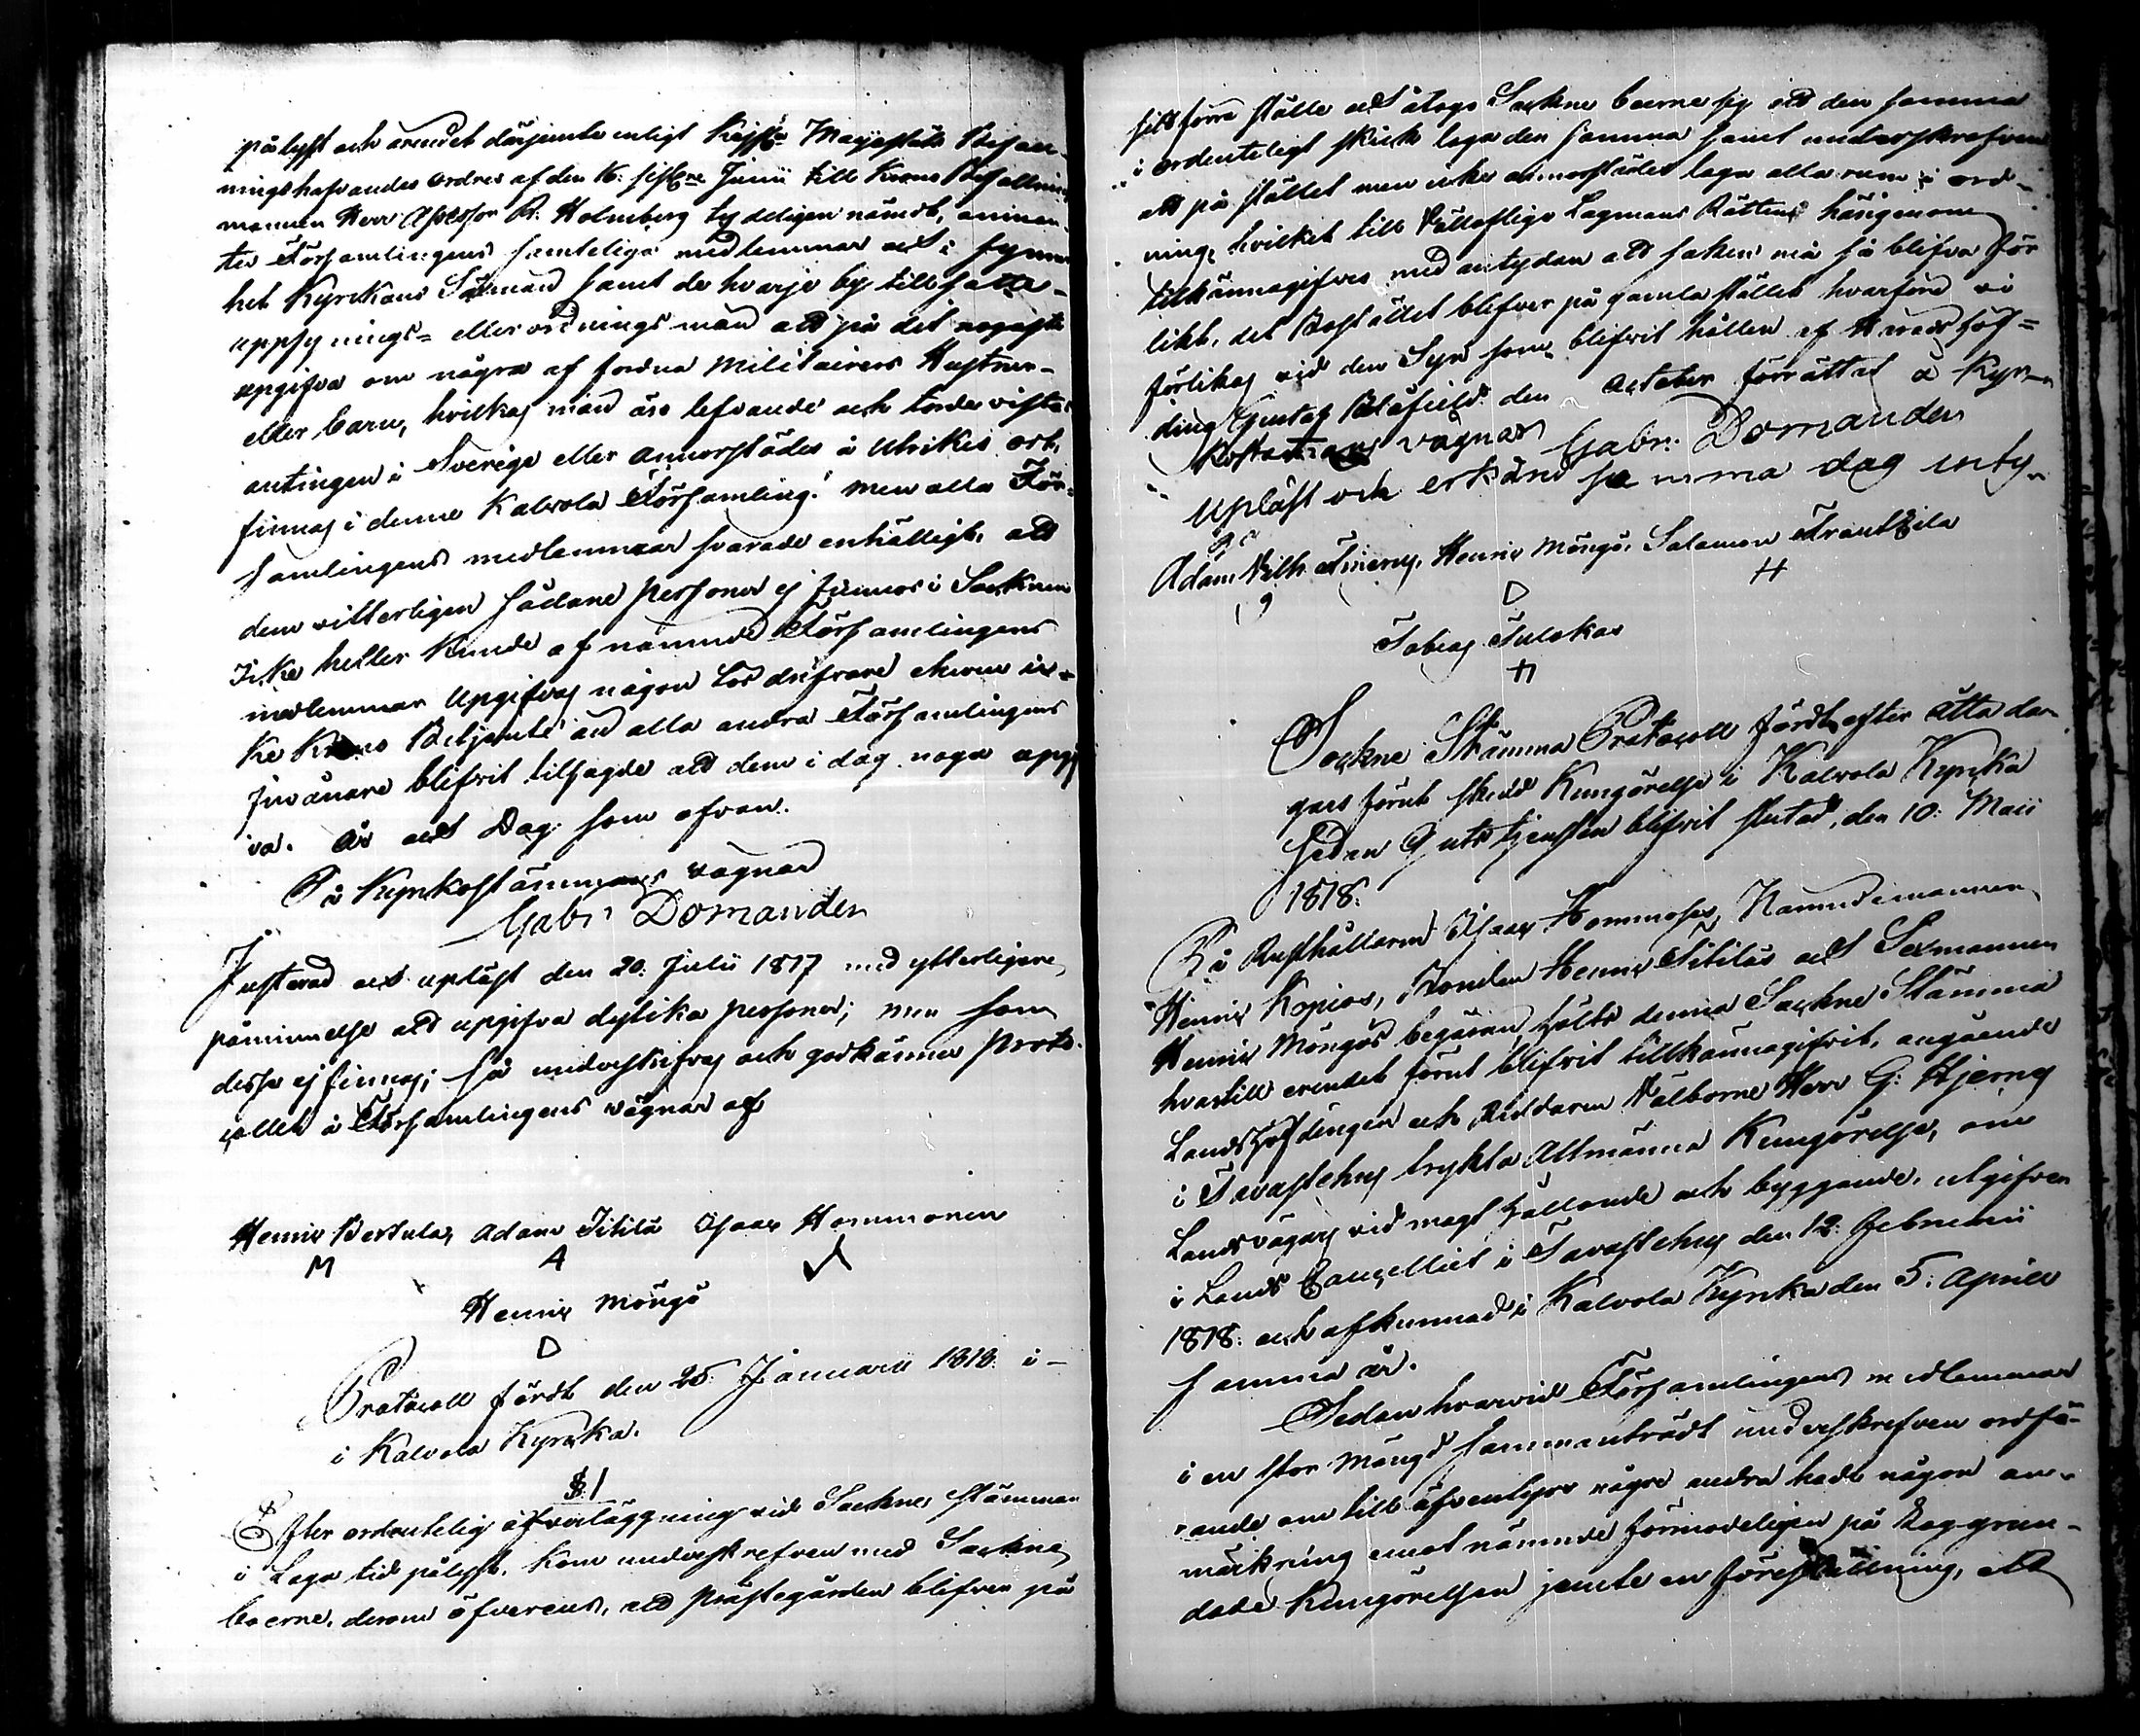 pålyst och ärendet därjemte enligt Kejsle Majestäts Befall-
ningshafvandes ordres af den 16: sistl:ne Junii till Krono Befallnings
mannen Herr Assessor R. Holmberg tydeligen nämdt, anman-
tes Församlingens samteliga medlemmar och i synner
het Kyrckans Säxmän samt de hvarje by tillsatte
uppsynings= eller ordningsmän att på det nogaste
upgifva om några af fordna Militairers Hustrur
eller barn, hvilkas män äro lefvande och torde vistas
antingen i Sverige eller annorstädes å utrikes ort,
finnas i denne Kalvola Församling! men alla För-
samlingens medlemmar svarade enhälligt, att
dem vitterligen sådane personer ej funnos i Socknen
Icke heller kunde af nämnde Församlingens
medlemmar upgifvas någon
ke Krono Betjente än alla andra Församlingens
Invånare blifvit tilsagde att dem i dag noga upgif
va. År och Dag som ofvan.
På Kyrkostämmans vägnar
Gabr: Domander
Justerad och upläst den 20. Julii 1817 med ytterligare
påminnelse att upgifva dylika personer; men som
desse ej finnas; så underskrifves och godkännes Proto-
collet å Församlingens vägnar af
Henric Bertula, Adam Sitilä Isaac Hommonen
M A
Henric Möngö
D
Protocoll fördt den 25. Januarii 1818. i
i Kalvola Kyrcka.
§ 1
Efter ordentelig öfverläggning vid Sockne stämman
i Laga tid pålyst, kom underskrefven med Sockne
boerne, derom öfverens, att Prästegården blifver på
sitt förra ställe och åtogo Sockne boerne sig att den samma
i ordenteligt skick laga den samma samt underskrefven
att på stället men icke annorstädes laga alla rum i ord-
ning, hvilket till Vällofliga Lagmans Rätten härigenom
tillkännagifves med antydan att saken må få blifva för
likt, det Bostället blifver på gamla stället hvarföre vi
förlikas vid den Syn som blifvit hållen af Häradshöf=
ding Gustaf Blåfield den October förrättat å Kyr-
kostämmans vägnar Gabr: Domander
Upläst och erkänd samma dag intyg-
ar
Adam Vilh. Finerus, Henric Möngö, Salamon Frantzila
D H
Tobias Tulokas
H
Sockne Stämma Protocoll fördt efter åtta da-
gars förut skedd Kungörelse i Kalvola Kyrcka
sedan Gudstjensten blifvit slutad, den 10: Maii
1818.
På Rusthållaren Isaac Hommoses, Nämndemannen
Henric Kopios, Bonden Henric Sitiläs och Sexmannen
Henric Möngös begäran, hölts denna Sockne Stämma
hvartill ärendet förut blifvit tillkännagifvit, angående
Landshöfdingen och Riddaren Välborne Herr G. Hjernes
i Tavastehus tryckta Allmänna Kungörelse, om
Landsvägars vid magt hållande och byggande, utgifven
i Lands Cancelliet i Tavastehus den 12. Februarii
1818. och afkunnad i Kalvola Kyrka den 5. Aprill
samma år.
Sedan hvarvid Församlingens medlemmar
i en stor mängd sammanträdt underskrefven ordfö-
rande om till äfventyrs några andra hade någon an-
märkning emot nämnde förmodeligen på Lag grun-
dade Kungörelsen jemte en föreställning, att